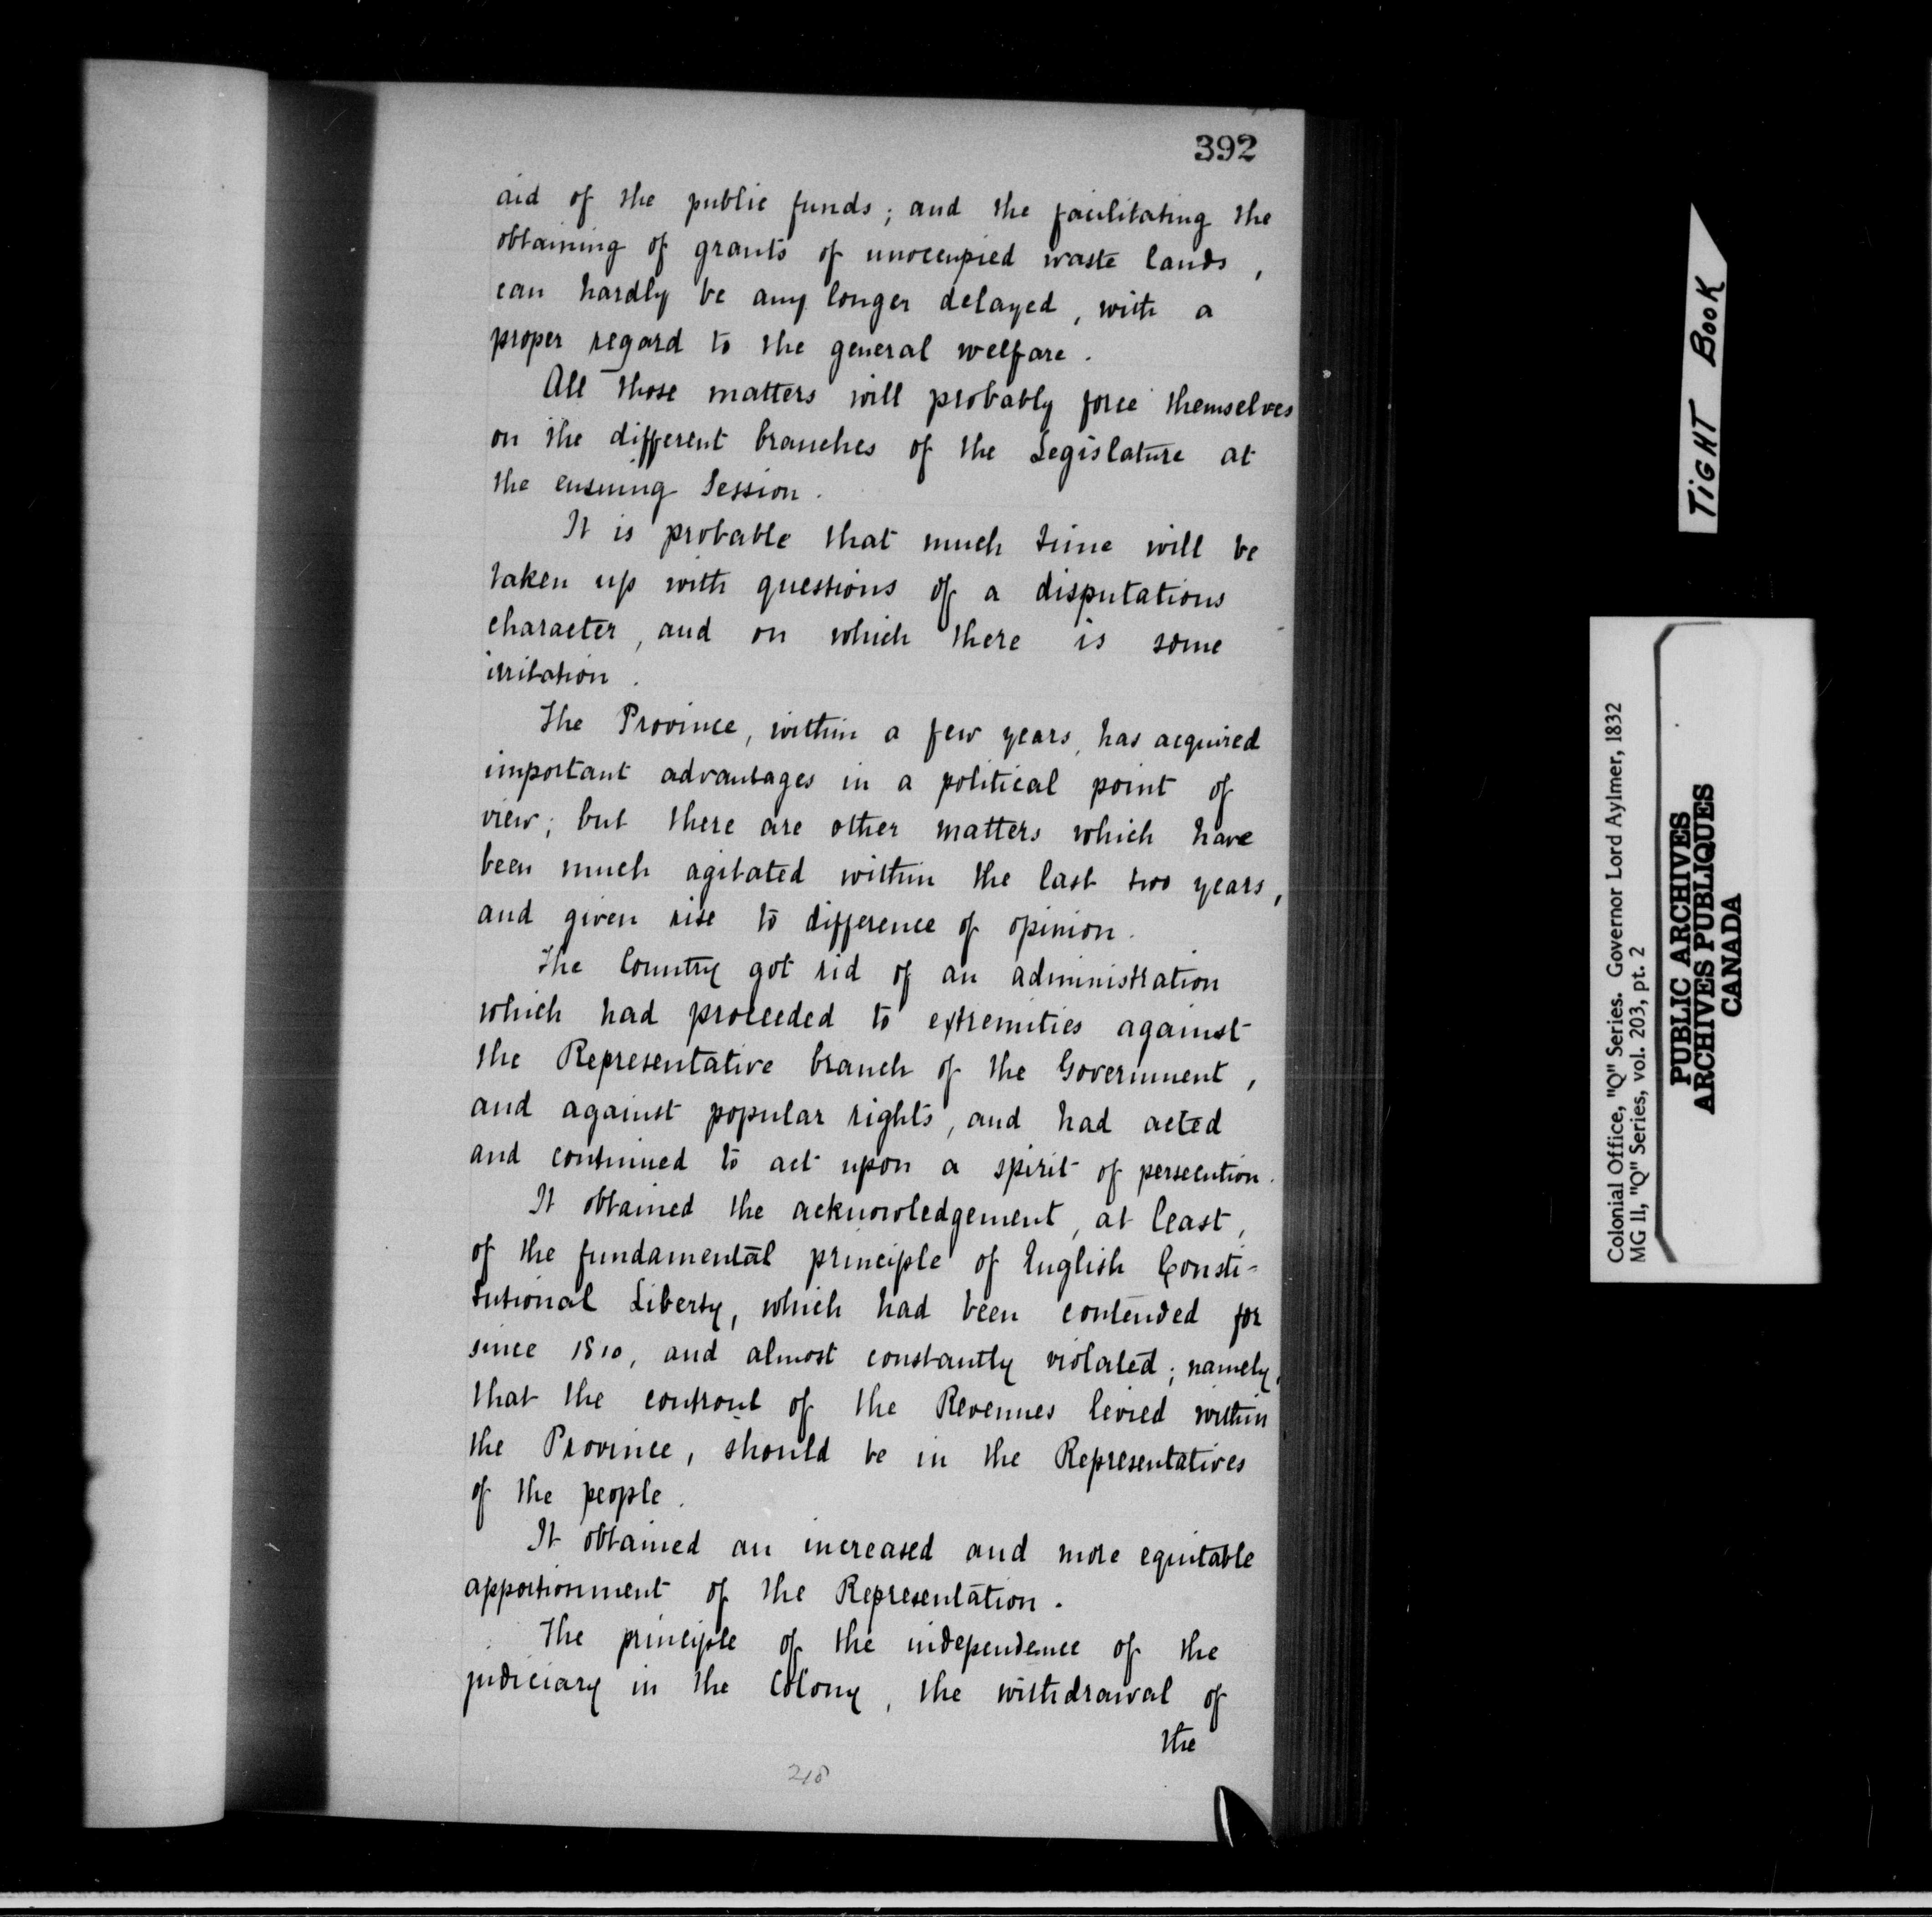 392
aid of the public funds; and the facilitating the
obtaining of grants of unoccupied waste lands,
can hardly be any longer delayed, with a
proper regard to the general welfare.
All those matters will probably force themselves
on the different branches of the Legislature at
the ensuing Session.
It is probable that much time will be
taken up with questions of a disputatious
character, and on which there is some
irritation.
The Province, within a few years, has acquired
important advantages in a political point of
view; but there are other matters which have
been much agitated within the last two years,
and given rise to difference of opinion.
The Country got rid of an administration
which had proceeded to extremities against
the Representative branch of the Government,
and against popular rights, and had acted
and continued to act upon a spirit of persecution.
It obtained the acknowledgement, at least,
of the fundamental principle of English Consti-
tutional Liberty, which had been contended for
since 1810, and almost constantly violated; namely,
that the controul of the Revenues levied within
the Province, should be in the Representatives
of the people.
It obtained an increased and more equitable
apportionment of the Representation.
The principle of the independence of the
judiciary in the Colony, the withdrawal of
the
218
TIGHT BOOK
Colonial Office, "Q" Series. Governor Lord Aylmer, 1832
MG 11, "Q" Series, vol. 203, pt. 2
PUBLIC ARCHIVES
ARCHIVES PUBLIQUES
CANADA